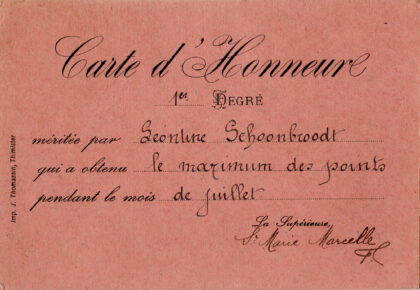 Carte d'Honneur
1er Degré
méritée par Léontine Schoonbroodt
qui a obtenu le maximum des points
pendant le mois de juillet
La Supérieure,
Sr Marie Marcelle
Imp. J. Thomasson, Thimister